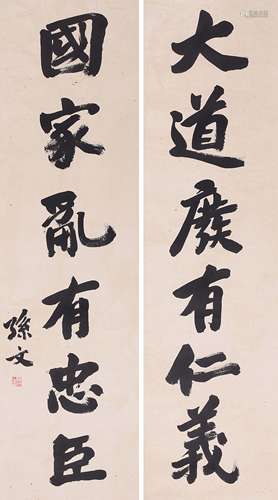 大道廢有仁義
國家亂有忠臣
孫文